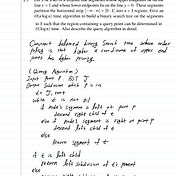 line y = 1 and whose lower endpoints lie on the line y = 0. These segments
partition the horizontal strip [−∞ : ∞] × [0 : 1] into n + 1 regions. Give an
O(n log n) time algorithm to build a binary search tree on the segments
in S such that the region containing a query point can be determined in
O(log n) time. Also describe the query algorithm in detail.
Construct balanced binary search tree whose order
policy is that higher x coordinate of upper end
point has higher priority.
(Query Algorithm)
Input point P, BST T
Output Subdivision of P
v ← T.root
while v is not nil
if node's segment is left at point P
descend right child of v
else if node's segment is right at point P
descend left child of v
else
return the segment
if v is left child
return left subdivision of v's parent
else